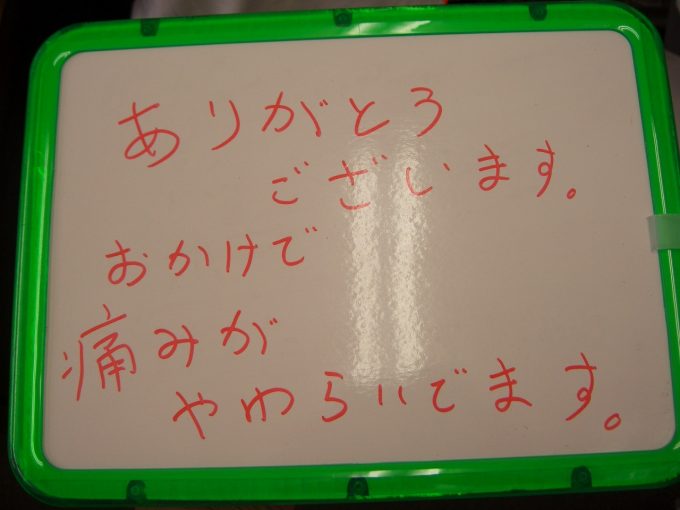 ありがとう
ございます。
おかけで
痛みが
やわらいでます。